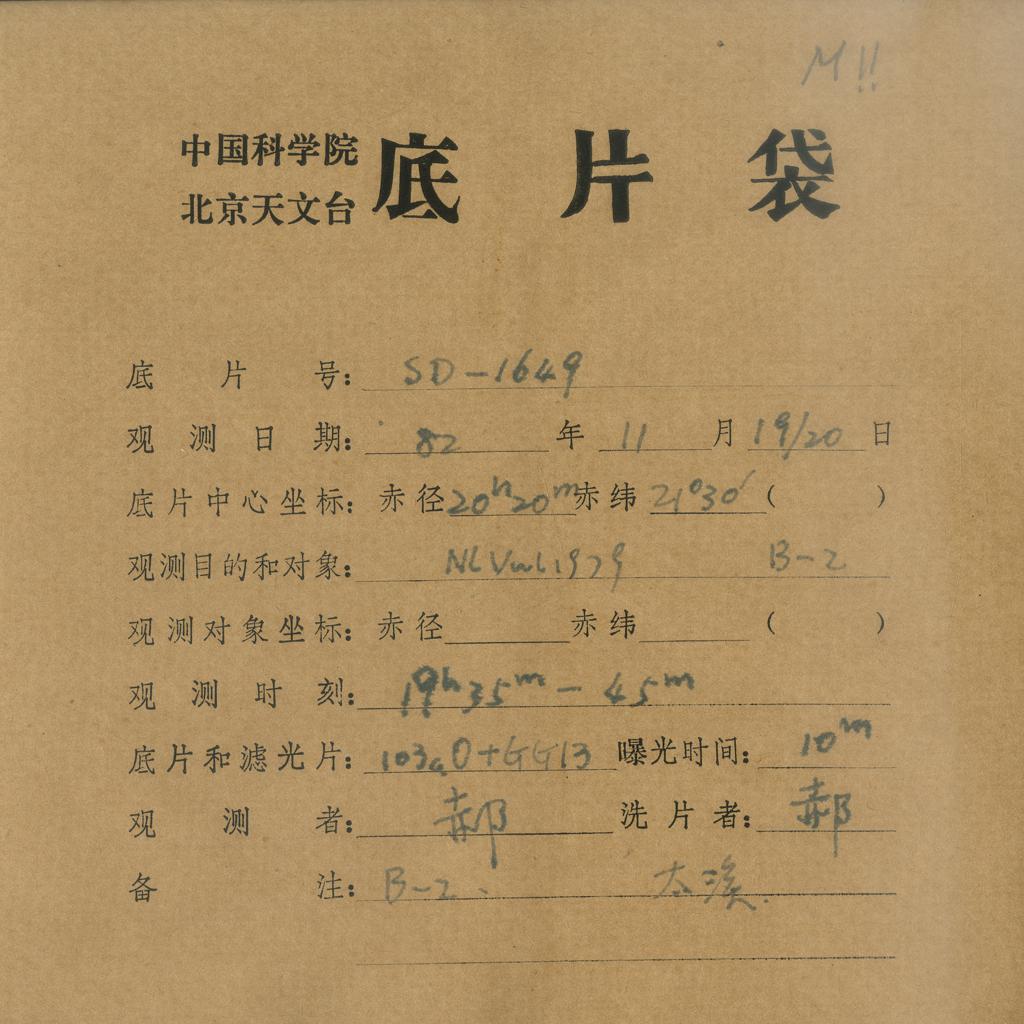 M!!
中国科学院
北京天文台 底片袋
底片号: SD-1649
观测日期: 82年11月19/20日
底片中心坐标: 赤径20h20m赤纬21°30′( )
观测目的和对象: NLVul1979 B-2
观测对象坐标: 赤径 赤纬 ( )
观测时刻: 19h35m-45m
底片和滤光片: 103aO+GG13 曝光时间: 10m
观测者: 郝 洗片者: 郝
备注: B-2. 太